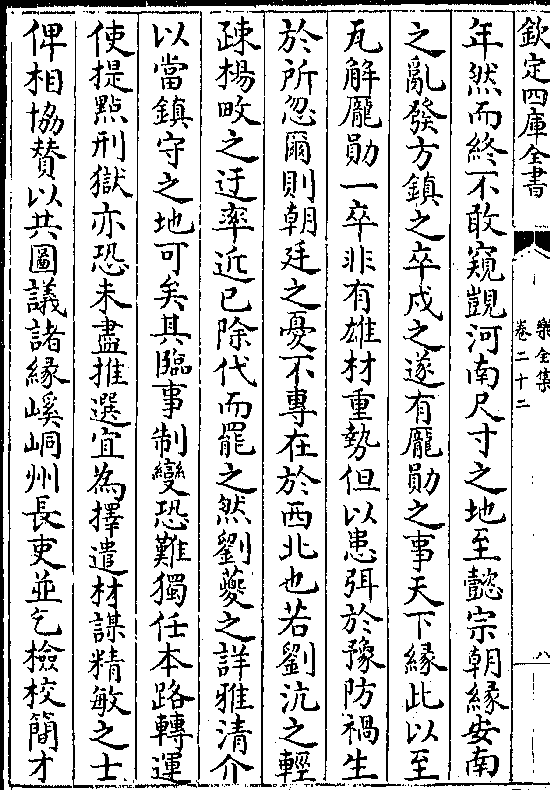 欽定四庫全書
樂全集
卷二十二
八
年然而終不敢窺覬河南尺寸之地至懿宗朝緣安南
之亂發方鎮之卒戍之遂有龎勛之事天下緣此以至
瓦解龎勛一卒非有雄材重勢但以患弭於豫防禍生
於所忽爾則朝廷之憂不專在於西北也若劉沆之輕
疎楊畋之迂率近已除代而罷之然劉夔之詳雅清介
以當鎮守之地可矣其臨事制變恐難獨任本路轉運
使提㸃刑獄亦恐未盡推選宜為擇遣材謀精敏之士
俾相協賛以共圖議諸緣嵠峒州長吏並乞檢校簡才